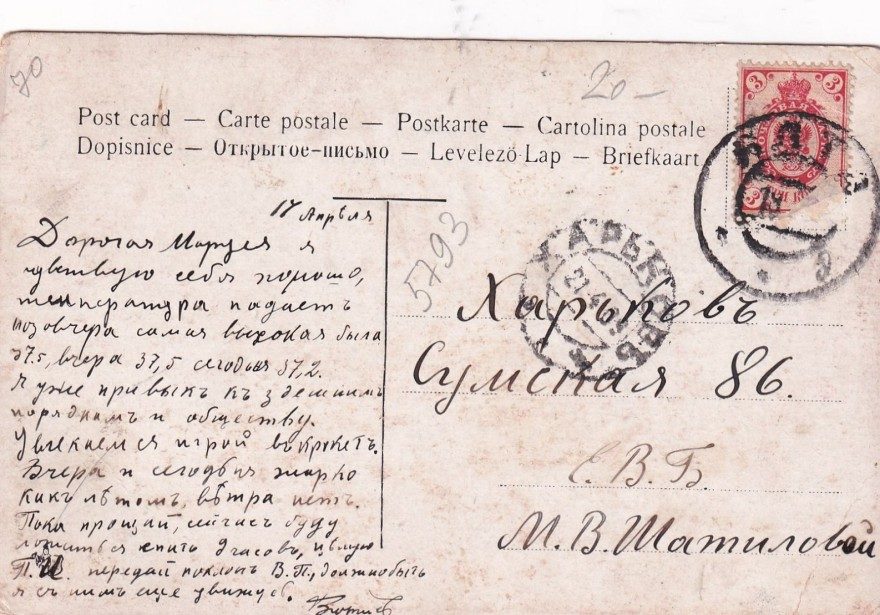 70
20-
Post card — Carte postale — Postkarte — Cartolina postale
Dopisnice — Открытое-письмо — Levelező-Lap — Briefkaart
3 3
3
ЯЛТА
17 Апрѣля
Дорогая Маруся я
чувствую себя хорошо,
температура падаетъ
позовчера самая высокая была
37.5, вчера 37,5 сегодня 37,2.
Я уже привыкъ къ здешнимъ
порядкамъ и обществу.
Увлекаемся игрой въ крокетъ.
Вчера и сегодня жарко
какъ лѣтомъ, вѣтра нетъ.
Пока прощай, сейчасъ буду
ложиться спать 9 часовъ, цѣлую
П. И. передай поклонъ В.П., должно быть
я съ нимъ еще увижусь.
5793
ХАРЬКОВЪ
21.4
Харьковъ
Сумская 86.
Е. В. Б.
М. В. Шатиловой